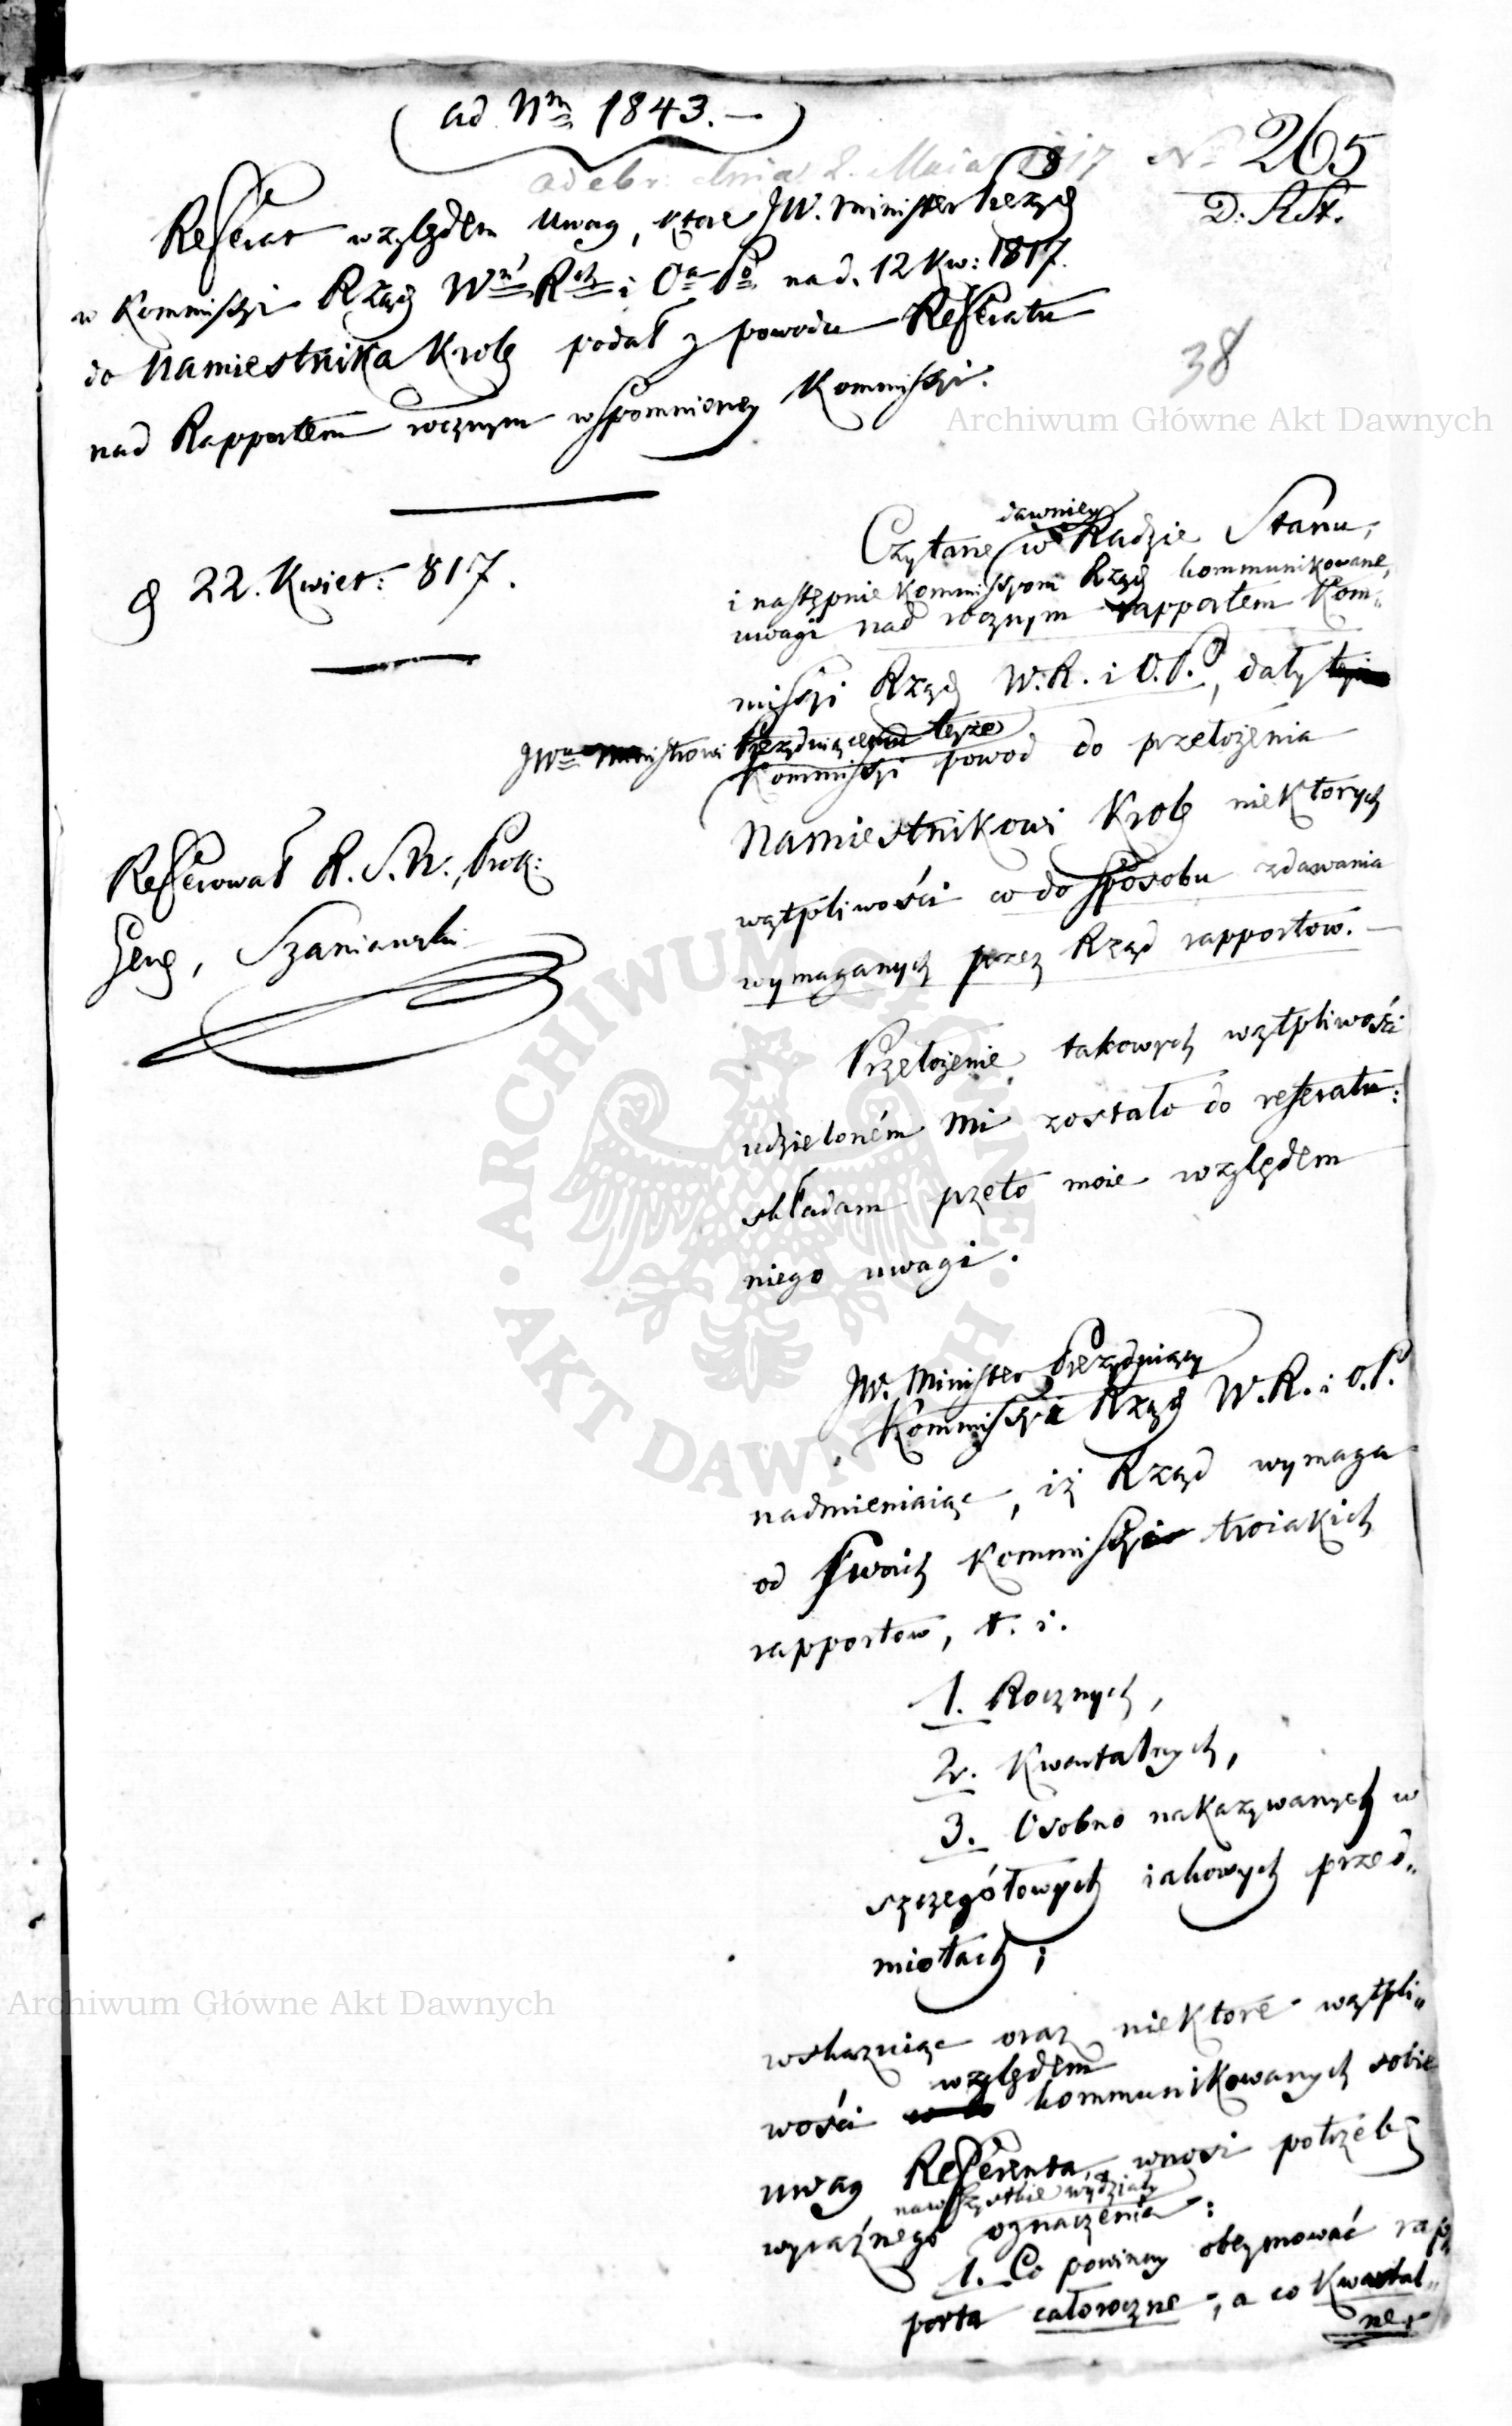 ad Nm 1843. —
ad ebr: dnia 2. Maia 1817 Nr 265
D: R.St.
38
Archiwum Główne Akt Dawnych
Referat względem uwag, ktore JW. Minister Prezyd
w Kommissyi Rząd Wń Rch i Oa Po nad. 12 Kw: 1817.
do Namiestnika Krolg podał z powodu Referatu
nad Rapportem rocznym wspomnioney Kommissyi.
d 22. Kwiet: 817.
Referował R. S. N., Prok:
Genl, Szaniawski
Czytane dawniey w Radzie Stanu,
i następnie Kommissyom Rząd kommunikowane,
uwagi nad rocznym rapportem Kom„
missyi Rząd W.R. i O.P., dały
JWu Ministrowi Prezyduiącemu teyże
Kommissyi powod do przełożenia
Namiestnikowi Krolg niektorych
wątpliwości co do sposobu zdawania
wymaganych przez Rząd rapportow. —
Przełożenie takowych wątpliwości
udzieloném mi zostało do referatu:
składam przeto moie względem
niego uwagi.
JW. Minister Prezyduiący
Kommissyi Rząd W.R. i O.P.
nadmieniaiąc, iż Rząd wymaga
od swoich Kommissyi troiakich
rapportow, t. i.
1. Rocznych,
2. Kwartalnych,
3. Osobno nakazywanych w
szczegółowych iakowych przed„
miotach;
wskazuiąc oraz niektore wątpli„
wości względem kommunikowanych sobie
uwag Referenta, wnosi potrzebę
wyraźnego na wszystkie wydziały oznaczenia:
1. Co powinny obeymować rap
porta całoroczne, a co kwartal„
ne,
Archiwum Główne Akt Dawnych
ARCHIWUM GŁÓWNE
AKT DAWNYCH